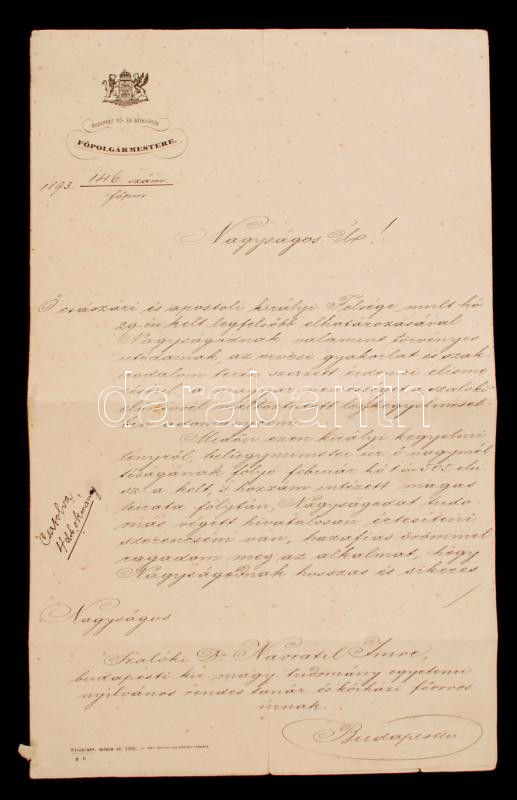 BUDAPEST FŐ- ÉS SZÉKVÁROS
FŐPOLGÁRMESTERE.
1893. 146 szám
főpm
Nagyságos Úr!
Ő császári és apostoli királyi Felsége mult hó
29-én kelt legfelsőbb elhatározásával
Nagyságodnak valamint törvényes
utódainak, az orvosi gyakorlat és szak-
irodalom terén szerzett érdemei elisme
réséül a magyar nemességet a „szalóki"
előnévvel díjmentesen legkegyelmeseb
ben adományozni
Midőn ezen királyi kegyelmi
tényről, belügyminister úr ő nagymél
tóságának folyó február hó
sz. a. kelt, s hozzám intézett magas
leirata folytán, Nagyságodat tudo-
más végett hivatalosan értesíteni
szerencsém van, hazafias örömmel
ragadom meg az alkalmat, hogy
Nagyságodnak hosszas és sikeres
Csatolva,
4 db okmány
Nagyságos
Szalóki Dr. Navratil Imre,
budapesti kir. magy. tudomány egyetemi
nyilvános rendes tanár és kórházi főorvos
úrnak
Budapesten
darabanth